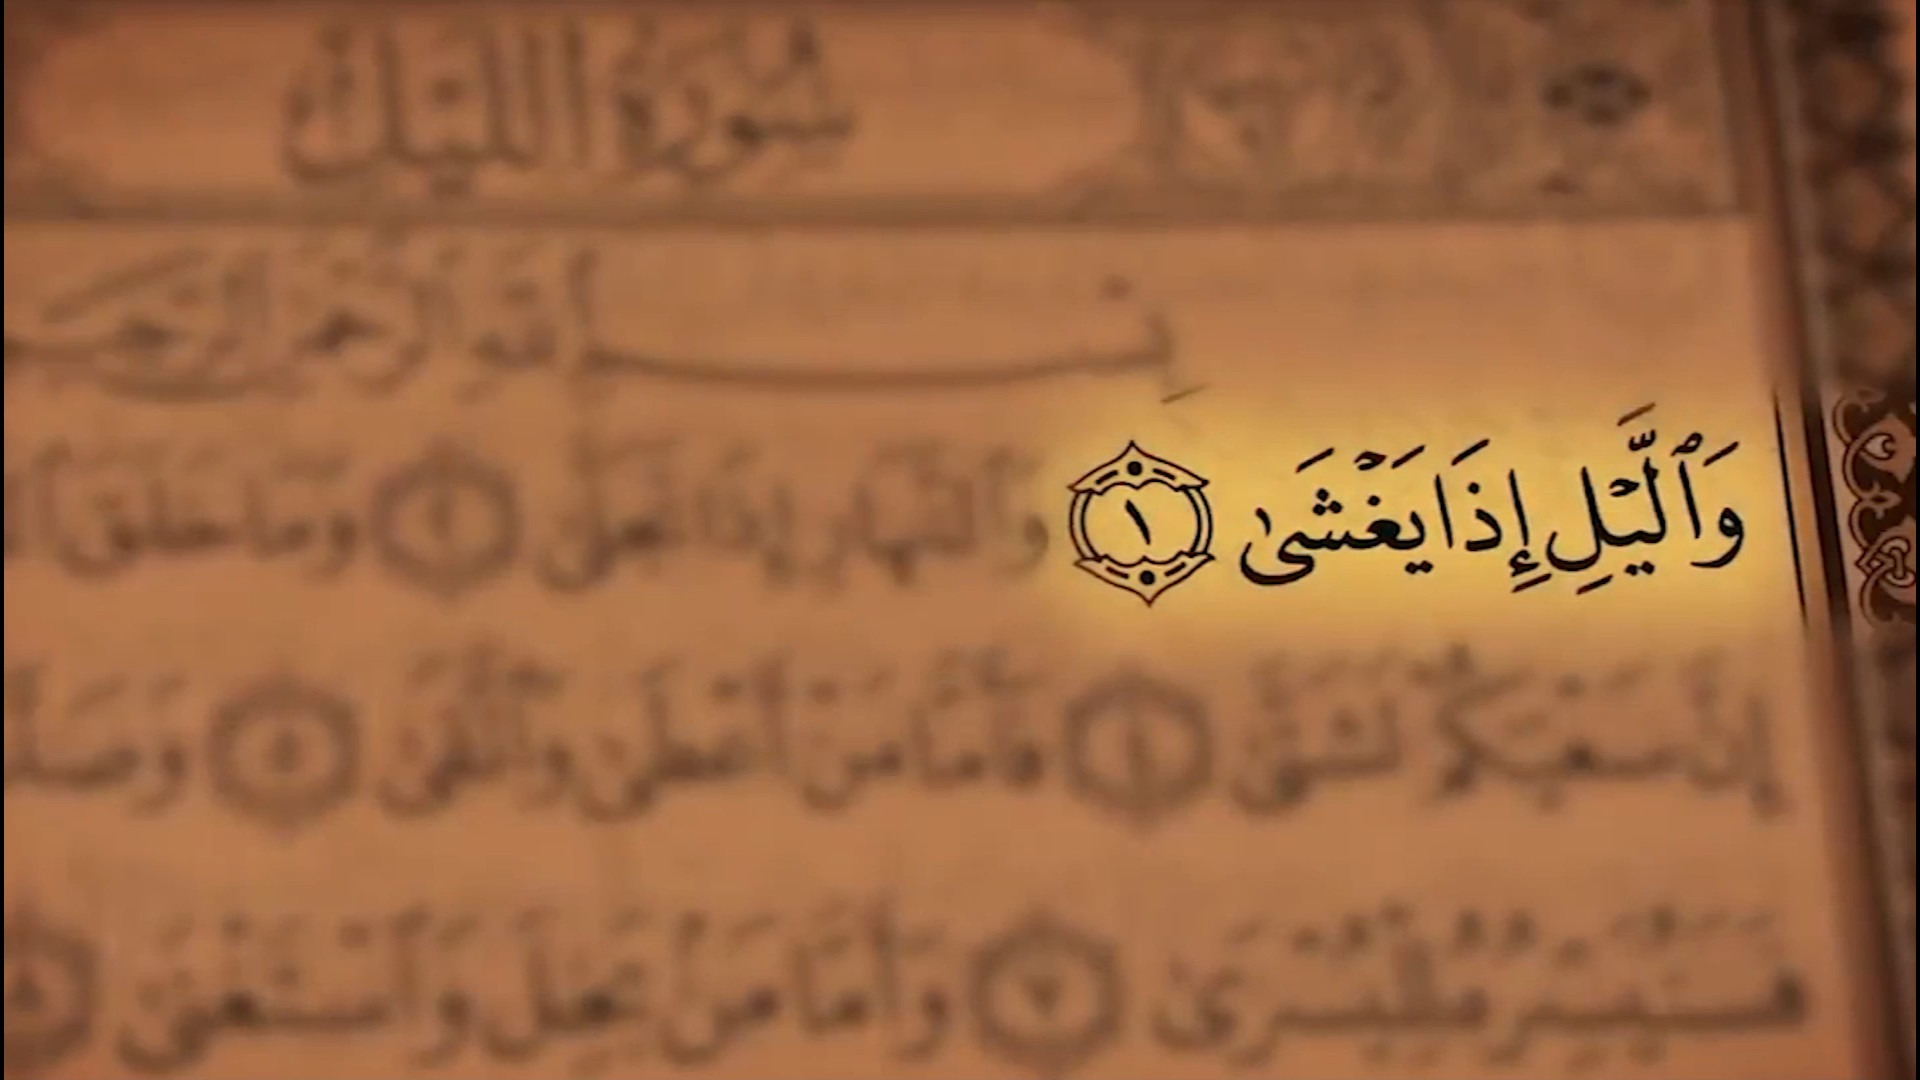 سُورَةُ اللَّيْلِ
بِسْمِ ٱللَّهِ ٱلرَّحْمَٰنِ ٱلرَّحِيمِ
وَٱلَّيْلِ إِذَا يَغْشَىٰ ١ وَٱلنَّهَارِ إِذَا تَجَلَّىٰ ٢ وَمَا خَلَقَ
إِنَّ سَعْيَكُمْ لَشَتَّىٰ ٤ فَأَمَّا مَنْ أَعْطَىٰ وَٱتَّقَىٰ ٥
فَسَنُيَسِّرُهُۥ لِلْيُسْرَىٰ ٧ وَأَمَّا مَنۢ بَخِلَ وَٱسْتَغْنَىٰ ٨